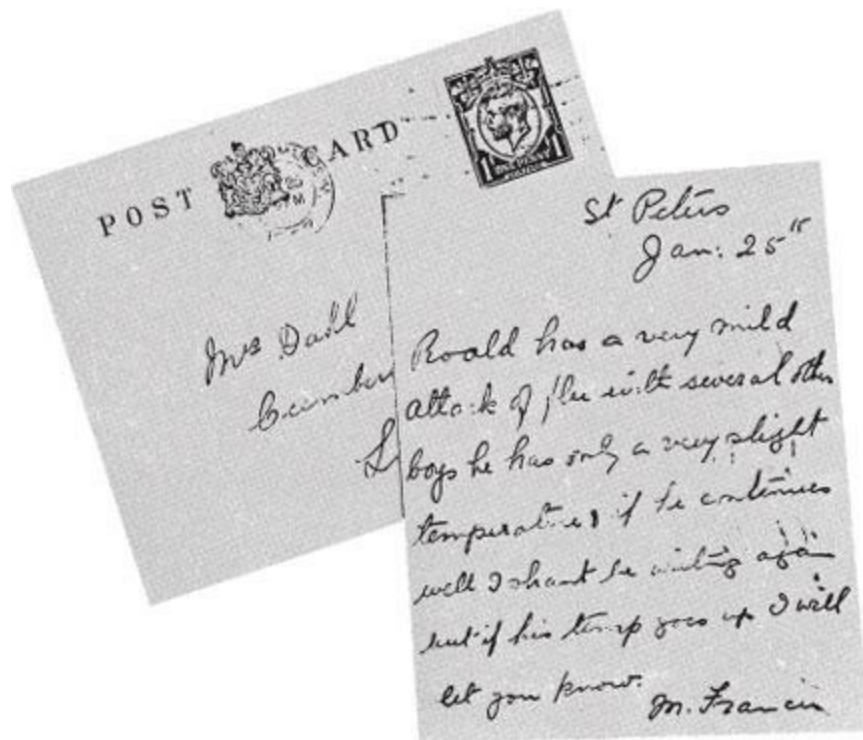 POST CARD
1 1
Mrs Dahl
St Peters
Jan: 25th
Roald has a very mild
attack of flu with several other
boys he has only a very slight
temperature & if he continues
well I shant be writing again
but if his temp goes up I will
let you know.
M. Francis